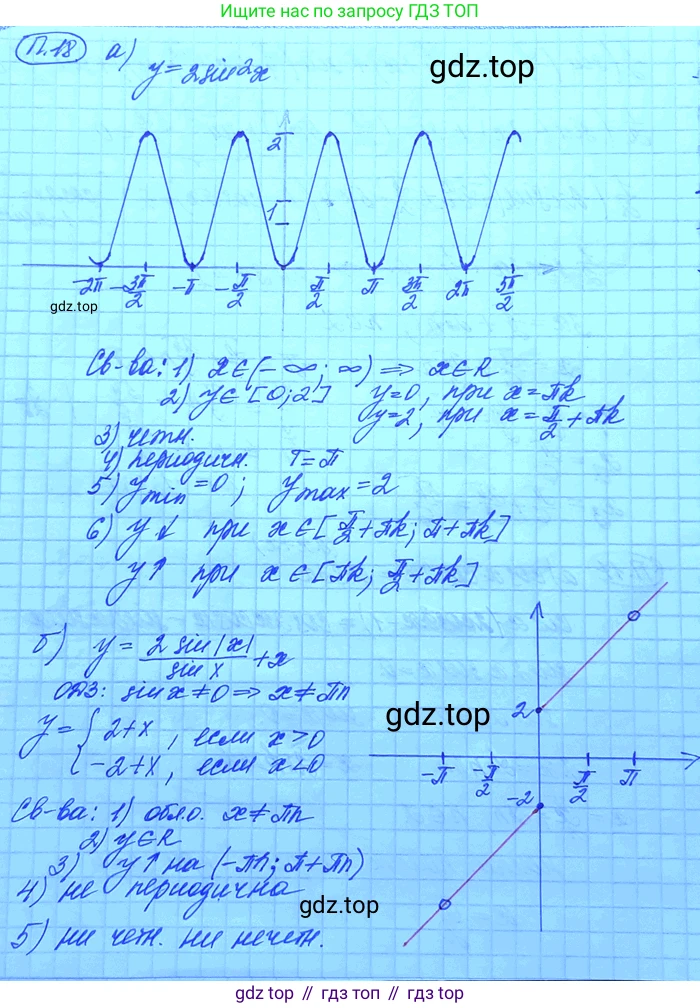 Ищите нас по запросу ГДЗ ТОП
П.18 а)
y = 2sin²x
gdz.top
2
1
-2π -3π/2 -π -π/2 π/2 π 3π/2 2π 5π/2
gdz.top
Св-ва: 1) x∈(-∞; ∞) => x∈R
2) y∈[0;2] y=0, при x=πk
y=2, при x=π/2+πk
3) четн.
4) периодичн. T=π
5) y min =0; y max =2
6) y↓ при x∈[π/2+πk; π+πk]
y↑ при x∈[πk; π/2+πk]
б) y = 2 sin|x|/sin x + x
ОДЗ: sin x≠0 => x≠πn
y = { 2+x, если x>0
-2+x, если x<0
gdz.top
2
-π -π/2 π/2 π
-2
Св-ва: 1) обл.о. x≠πn
2) y∈R
3) y↑ на (-πn; π+πn)
4) не периодична
gdz.top
5) ни четн. ни нечетн.
gdz.top // гдз.топ // gdz.top // гдз.топ